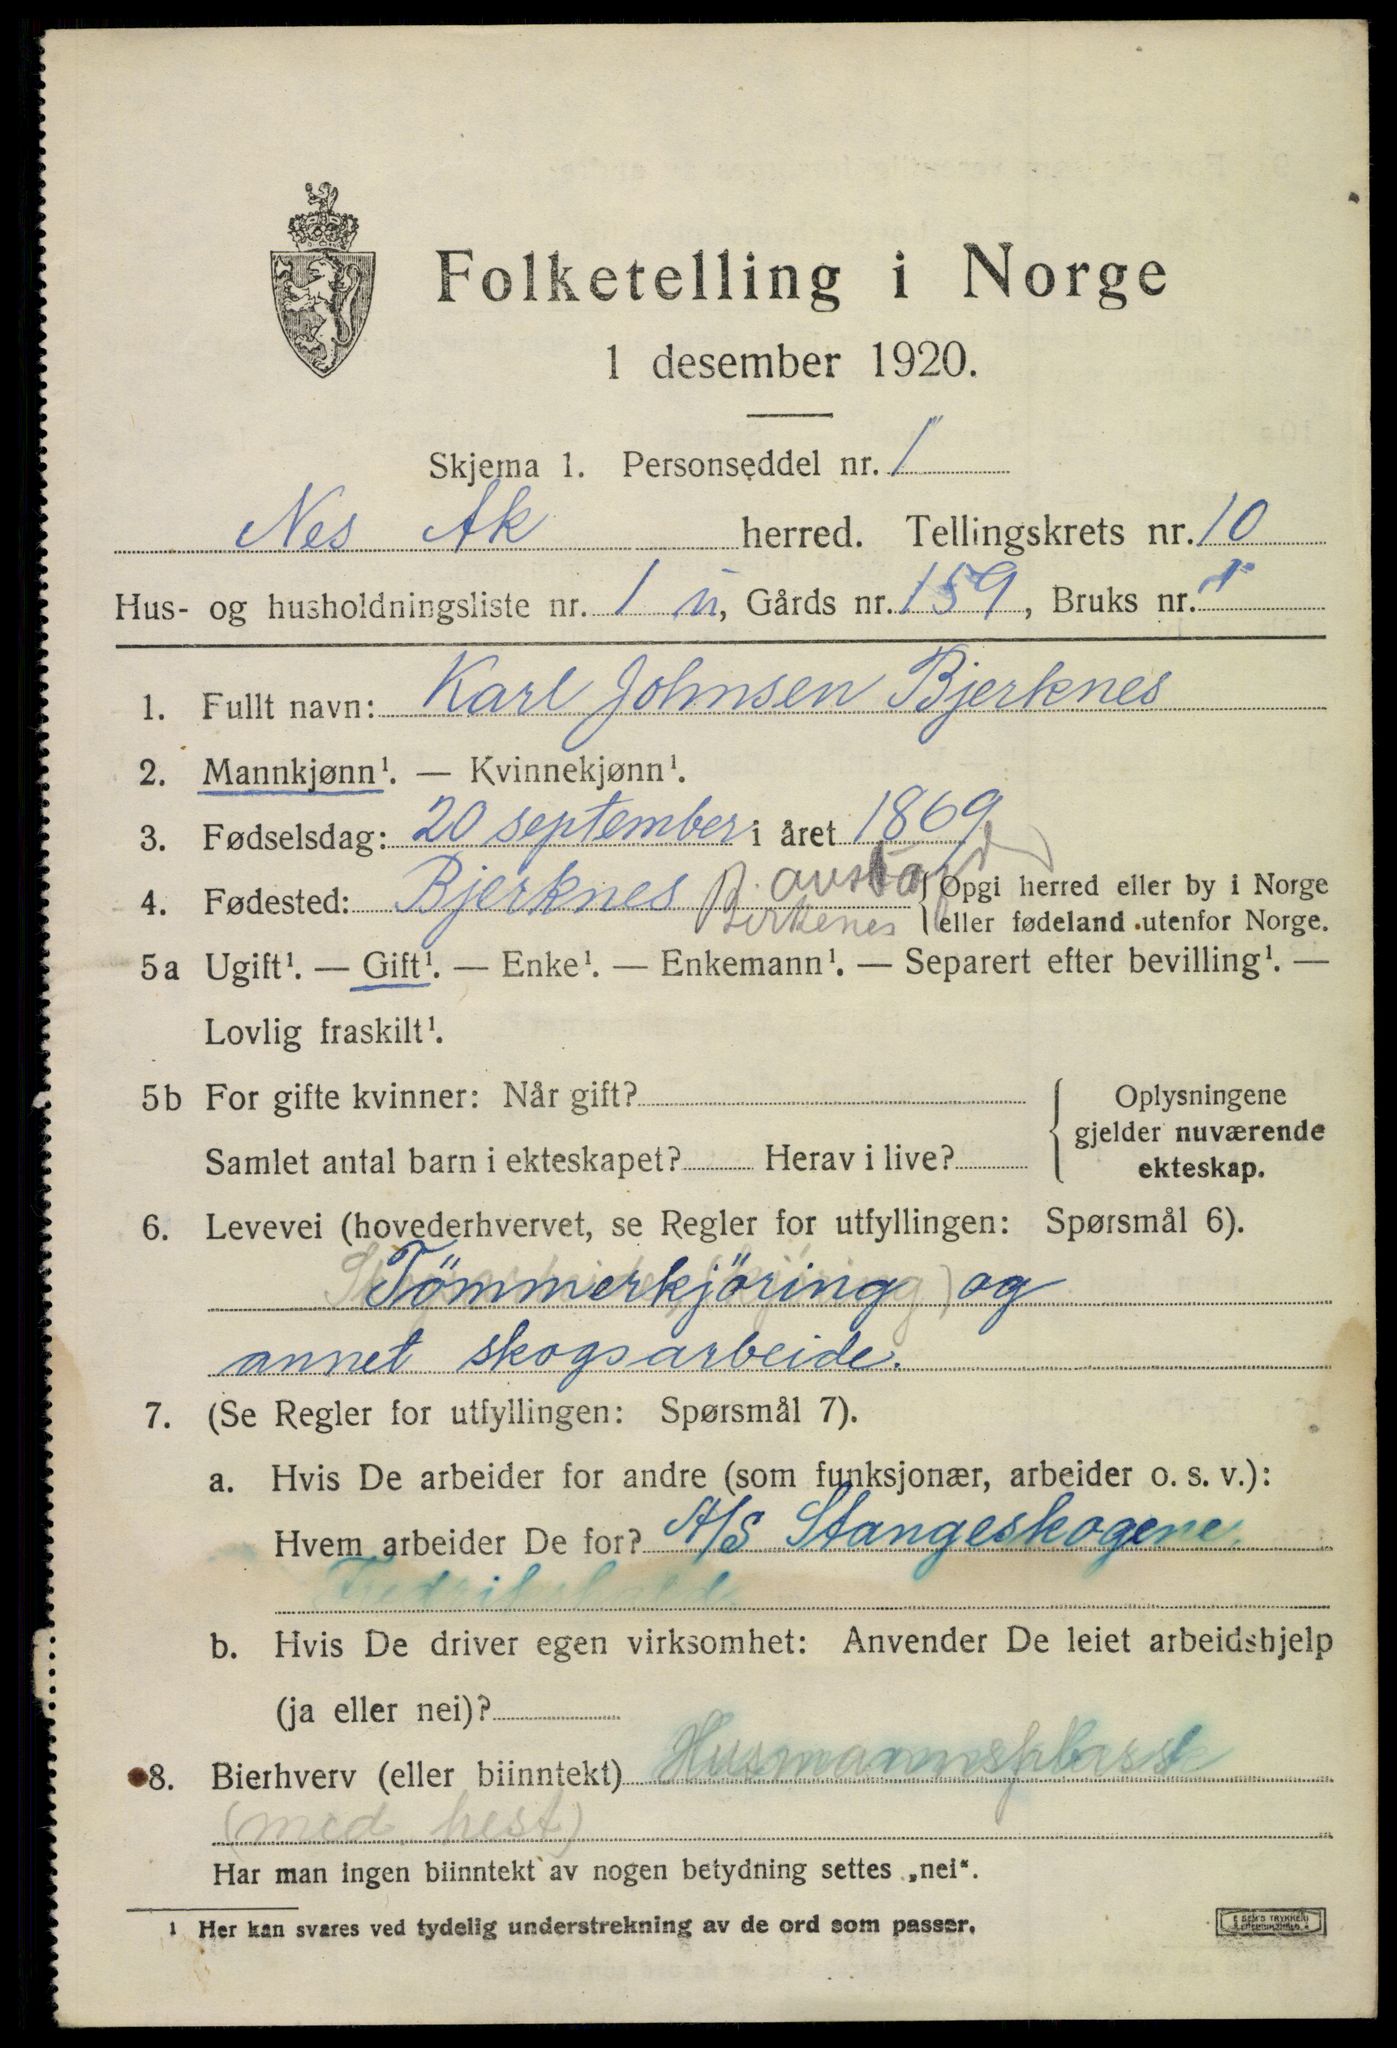 Folketelling i Norge
1 desember 1920.
Skjema 1. Personseddel nr. 1
Nes Ak herred. Tellingskrets nr. 10
Hus- og husholdningsliste nr. 1 u, Gårds nr. 159, Bruks nr. 1
1. Fullt navn: Karl Johnsen Bjerknes
2. Mannkjønn¹. — Kvinnekjønn¹.
3. Fødselsdag: 20 september i året 1869
4. Fødested: Bjerknes Birkenes
Opgi herred eller by i Norge
eller fødeland utenfor Norge.
5a Ugift¹. — Gift¹. — Enke¹. — Enkemann¹. — Separert efter bevilling¹. —
Lovlig fraskilt¹.
5b For gifte kvinner: Når gift?
Samlet antal barn i ekteskapet? Herav i live?
Oplysningene
gjelder nuværende
ekteskap.
6. Levevei (hovederhvervet, se Regler for utfyllingen: Spørsmål 6).
Tömmerkjöring og
annet skogsarbeide.
7. (Se Regler for utfyllingen: Spørsmål 7).
a. Hvis De arbeider for andre (som funksjonær, arbeider o. s. v.):
Hvem arbeider De for? A/S Stangeskogene
Fredrikshald
b. Hvis De driver egen virksomhet: Anvender De leiet arbeidshjelp
(ja eller nei)?
8. Bierhverv (eller biinntekt) Husmannsplass
(med hest)
Har man ingen biinntekt av nogen betydning settes „nei“.
¹ Her kan svares ved tydelig understrekning av de ord som passer.